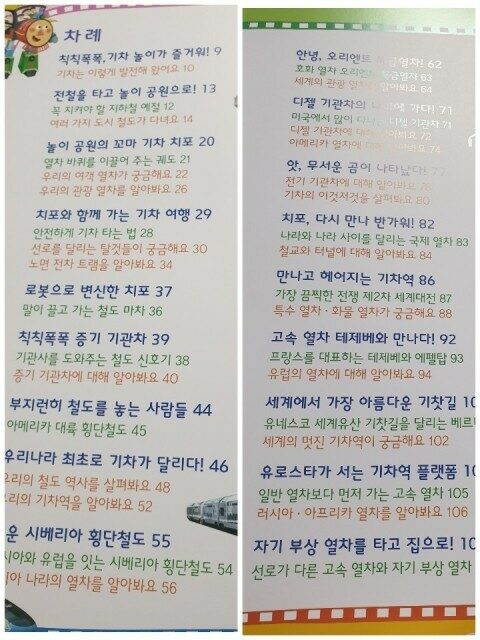 차례
칙칙폭폭, 기차 놀이가 즐거워! 9
기차는 이렇게 발전해 왔어요 10
전철을 타고 놀이 공원으로! 13
꼭 지켜야 할 지하철 예절 12
여러 가지 도시 철도가 다녀요 14
놀이 공원의 꼬마 기차 치포 20
열차 바퀴를 이끌어 주는 궤도 21
우리의 여객 열차가 궁금해요 22
우리의 관광 열차를 알아봐요 26
치포와 함께 가는 기차 여행 29
안전하게 기차 타는 법 28
선로를 달리는 탈것들이 궁금해요 30
노면 전차 트램을 알아봐요 34
로봇으로 변신한 치포 37
말이 끌고 가는 철도 마차 36
칙칙폭폭 증기 기관차 39
기관사를 도와주는 철도 신호기 38
증기 기관차에 대해 알아봐요 40
부지런히 철도를 놓는 사람들 44
아메리카 대륙 횡단철도 45
우리나라 최초로 기차가 달리다! 46
우리의 철도 역사를 살펴봐요 48
우리의 기차역을 알아봐요 52
운 시베리아 횡단철도 55
시아와 유럽을 잇는 시베리아 횡단철도 54
시아 나라의 열차를 알아봐요 56
안녕, 오리엔트 급열차! 62
호화 열차 오리엔트 특급열차 63
세계의 관광 열차를 알아봐요 64
디젤 기관차의 나라에 가다! 71
미국에서 많이 다니는 디젤 기관차 71
디젤 기관차에 대해 알아봐요 72
아메리카 열차를 알아봐요 74
앗, 무서운 곰이 나타났다! 77
전기 기관차에 대해 알아봐요 78
기차의 이것저것을 살펴봐요 80
치포, 다시 만나 반가워! 82
나라와 나라 사이를 달리는 국제 열차 83
철교와 터널에 대해 알아봐요 84
만나고 헤어지는 기차역 86
가장 끔찍한 전쟁 제2차 세계대전 87
특수 열차·화물 열차가 궁금해요 88
고속 열차 테제베와 만나다! 92
프랑스를 대표하는 테제베와 에펠탑 93
유럽의 열차에 대해 알아봐요 94
세계에서 가장 아름다운 기찻길 10
유네스코 세계유산 기찻길을 달리는 베르
세계의 멋진 기차역이 궁금해요 102
유로스타가 서는 기차역 플랫폼 10
일반 열차보다 먼저 가는 고속 열차 105
러시아·아프리카 열차를 알아봐요 106
자기 부상 열차를 타고 집으로! 10
선로가 다른 고속 열차와 자기 부상 열차